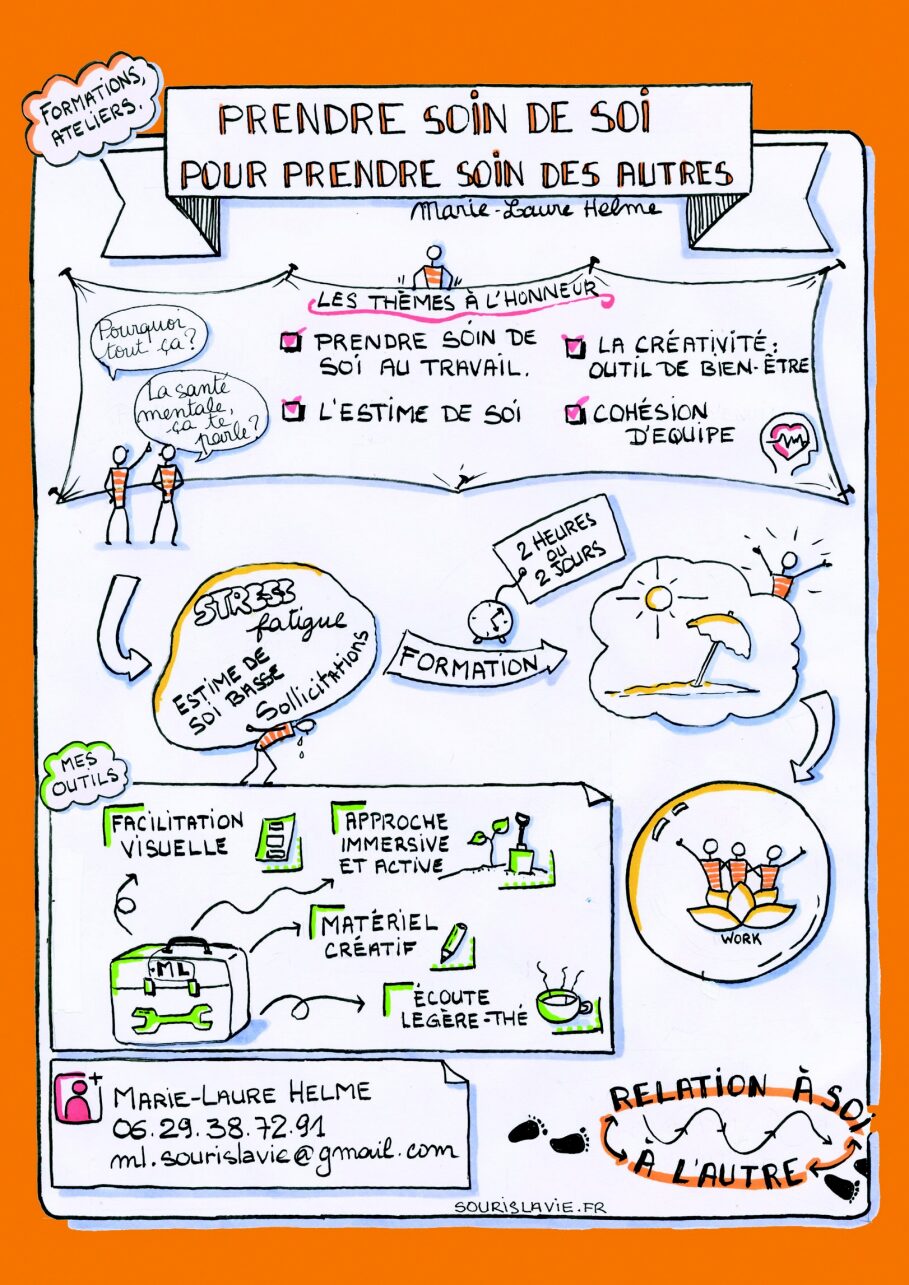 FORMATIONS,
ATELIERS.
PRENDRE SOIN DE SOI
POUR PRENDRE SOIN DES AUTRES
Marie-Laure Helme
LES THÈMES À L'HONNEUR
Pourquoi
tout ça?
La santé
mentale,
ça te
parle?
PRENDRE SOIN DE
SOI AU TRAVAIL.
L'ESTIME DE SOI
LA CRÉATIVITÉ:
OUTIL DE BIEN-ÊTRE
COHÉSION
D'EQUIPE
STRESS
fatigue
ESTIME DE
SOI BASSE
Sollicitations
2 HEURES
OU
2 JOURS
FORMATION
WORK
MES
OUTILS
FACILITATION
VISUELLE
APPROCHE
IMMERSIVE
ET ACTIVE
MATÉRIEL
CRÉATIF
ÉCOUTE
LÉGÈRE-THÉ
ML
MARIE-LAURE HELME
06.29.38.72.91
ml.sourislavie@gmail.com
RELATION À SOI
À L'AUTRE
SOURISLAVIE.FR